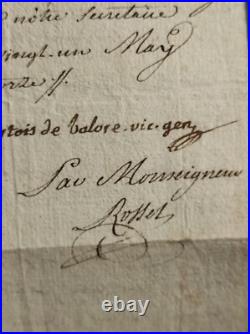 nôtre Secretaire
vingt-un May
de Valore. vic. gen.
Par Monseigneur
Rosset